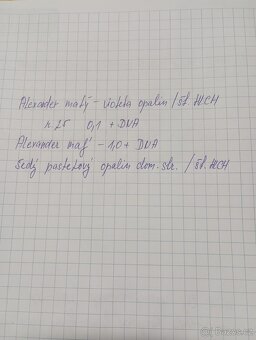 Alexander malý - violeta opalin / št. NCH
r. 25 0,1 + DNA
Alexander malý - 1,0 + DNA
Šedý pastelový opalin dom. str. / št. NCH